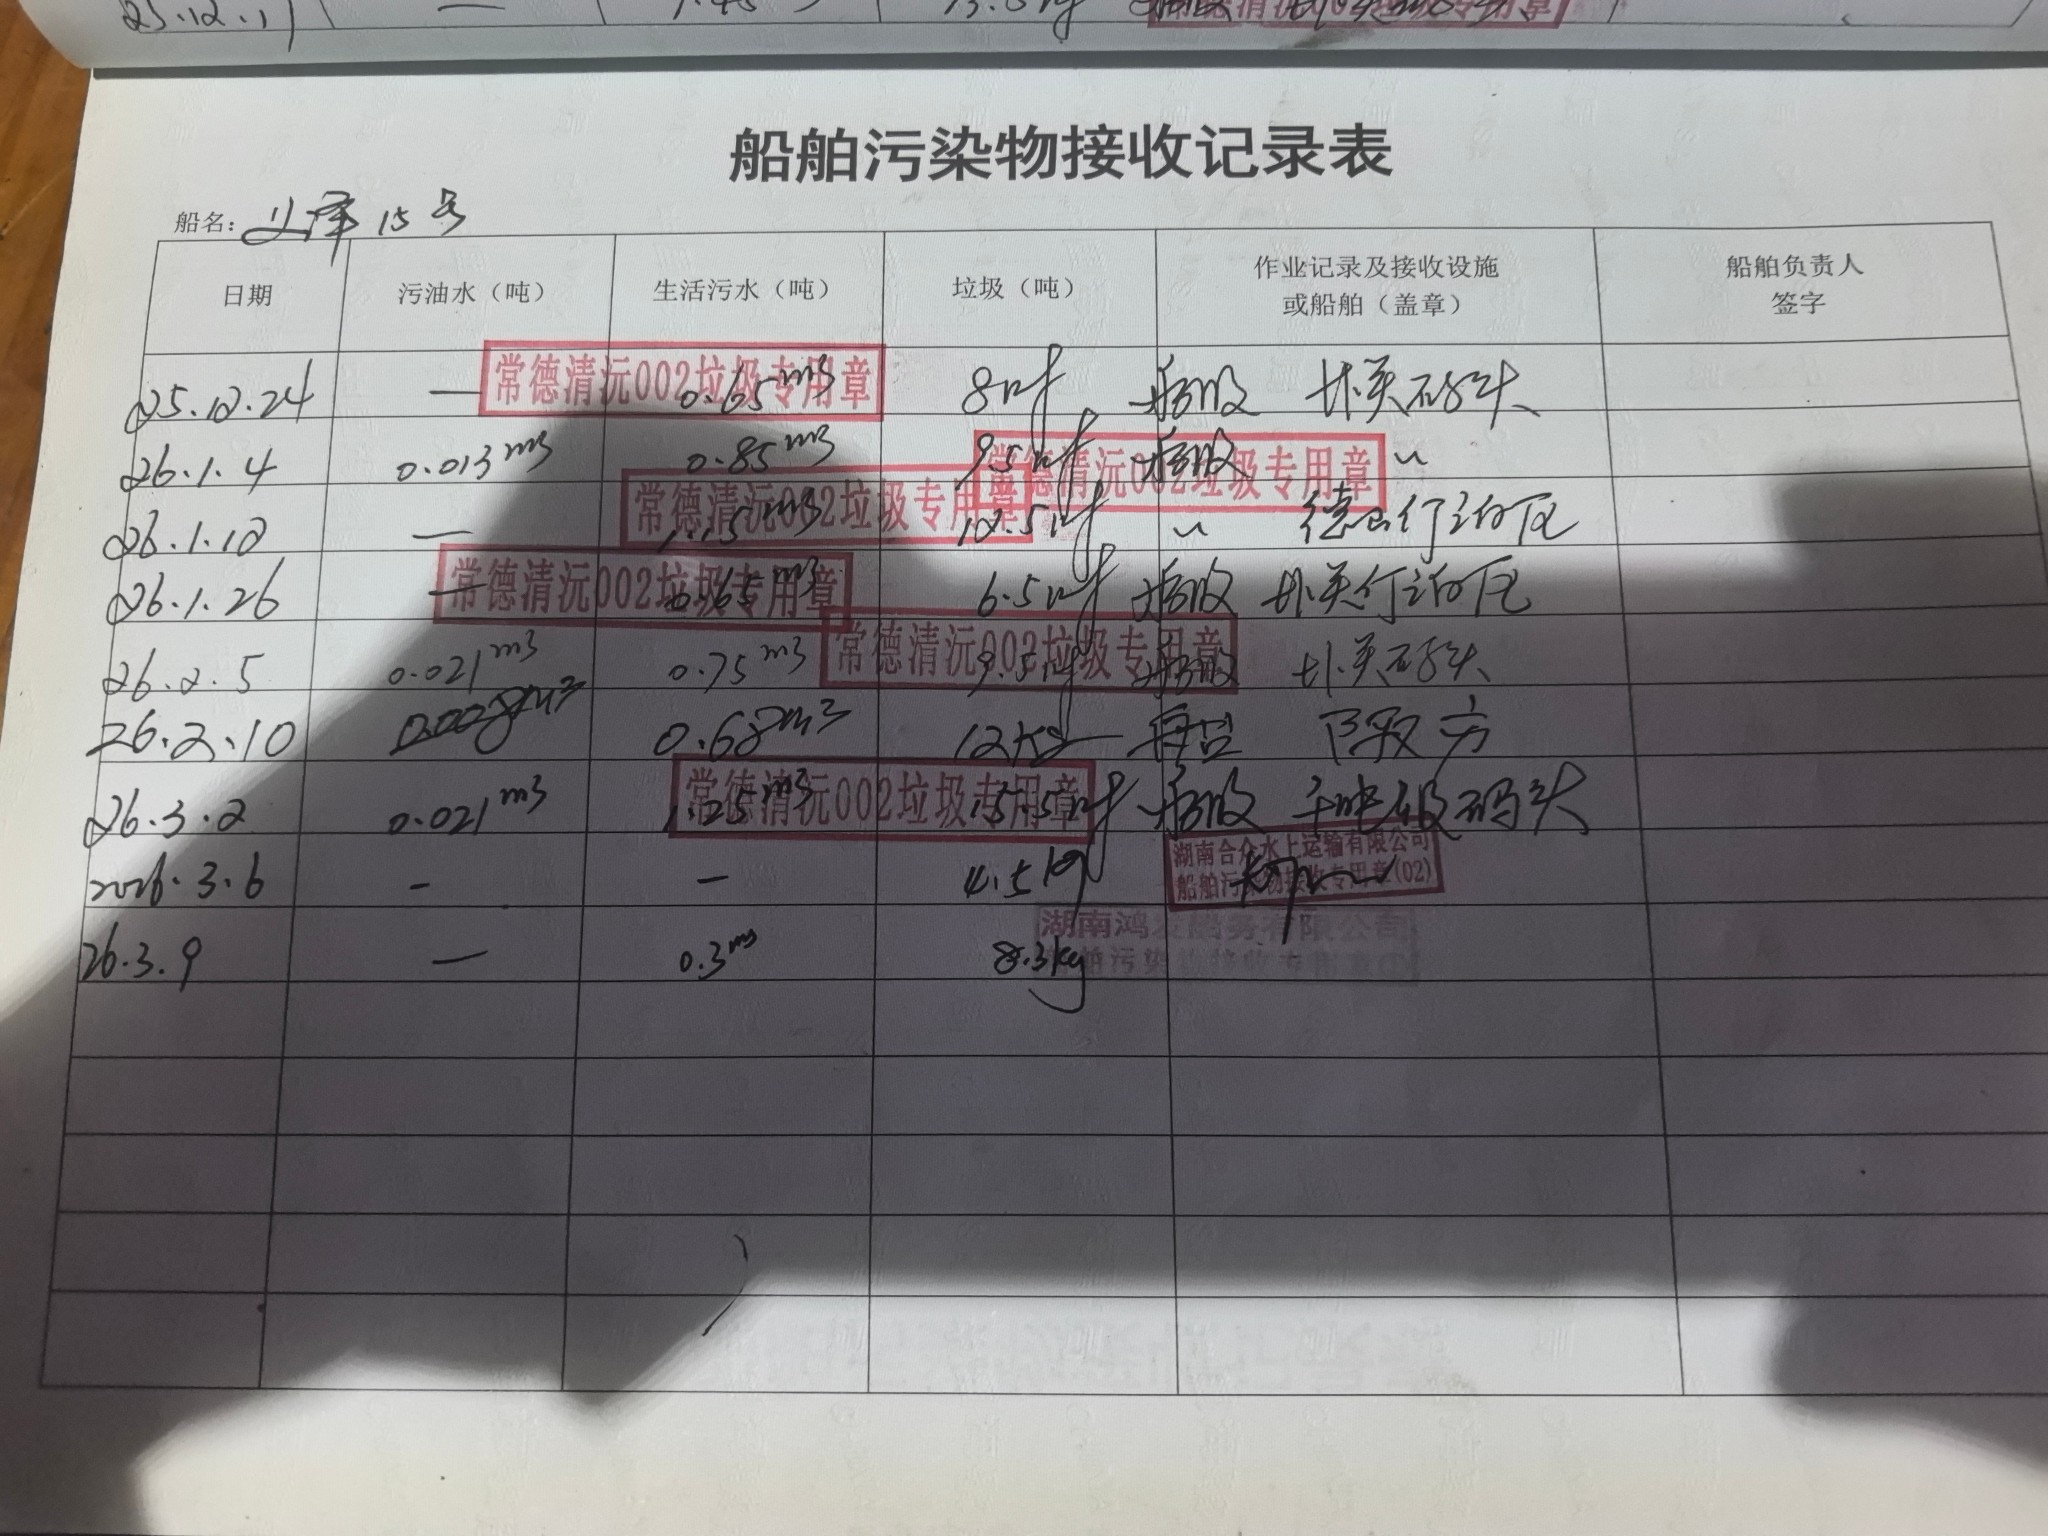 25.12.11 —
船舶污染物接收记录表
船名: 义泽 15号
日期 污油水（吨） 生活污水（吨） 垃圾（吨） 作业记录及接收设施或船舶（盖章） 船舶负责人签字
25.12.24 — 0.65m3 8kg 码头
常德清沅002垃圾专用章
26.1.4 0.013m3 0.85m3 9.5kg 〃
常德清沅002垃圾专用章
26.1.12 — 1.15m3 12.5kg 〃 德山
常德清沅002垃圾专用章
26.1.26 — 0.65m3 6.5kg
常德清沅002垃圾专用章
26.2.5 0.021m3 0.75m3 9.5kg 码头
常德清沅002垃圾专用章
26.2.10 0.008m3 0.68m3 12kg
26.3.2 0.021m3 1.25m3 15.5kg 码头
常德清沅002垃圾专用章
2026.3.6 - - 4.5kg
湖南合众水上运输有限公司
船舶污染物接收专用章(02)
26.3.9 — 0.3m3 8.3kg
湖南鸿发船务有限公司
船舶污染物接收专用章